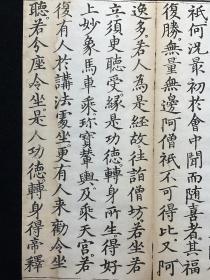 祇何況最初於會中聞而隨喜者其福
復勝無量無邊阿僧祇不可得比又阿
逸多若人為是經故往詣僧坊若坐若
立須臾聽受緣是功德轉身所生得好
上妙象馬車乘珍寶輦輿及乘天宮若
復有人於講法處坐更有人來勸令坐
聽若分座令坐是人功德轉身得帝釋